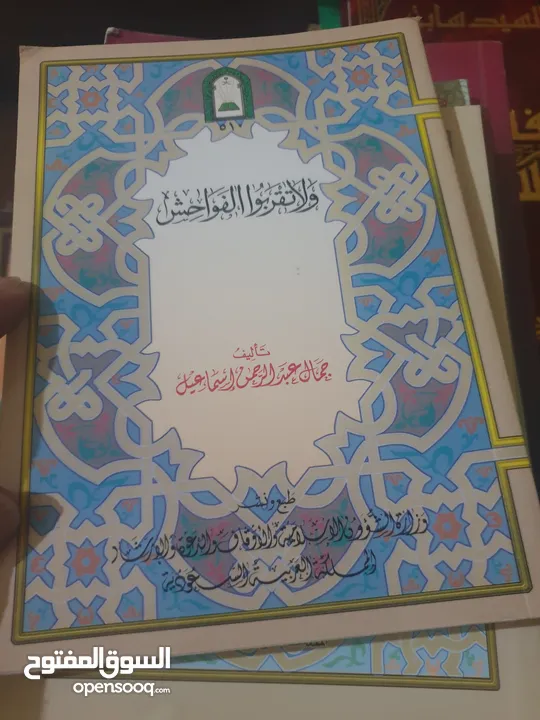 السيد سابق
٥١٧
ولا تقربوا الفواحش
تأليف
جمال عبد الرحمن إسماعيل
طبع ونشر
وزارة الشؤون الإسلامية والأوقاف والدعوة والإرشاد
المملكة العربية السعودية
السوق المفتوح
opensooq.com